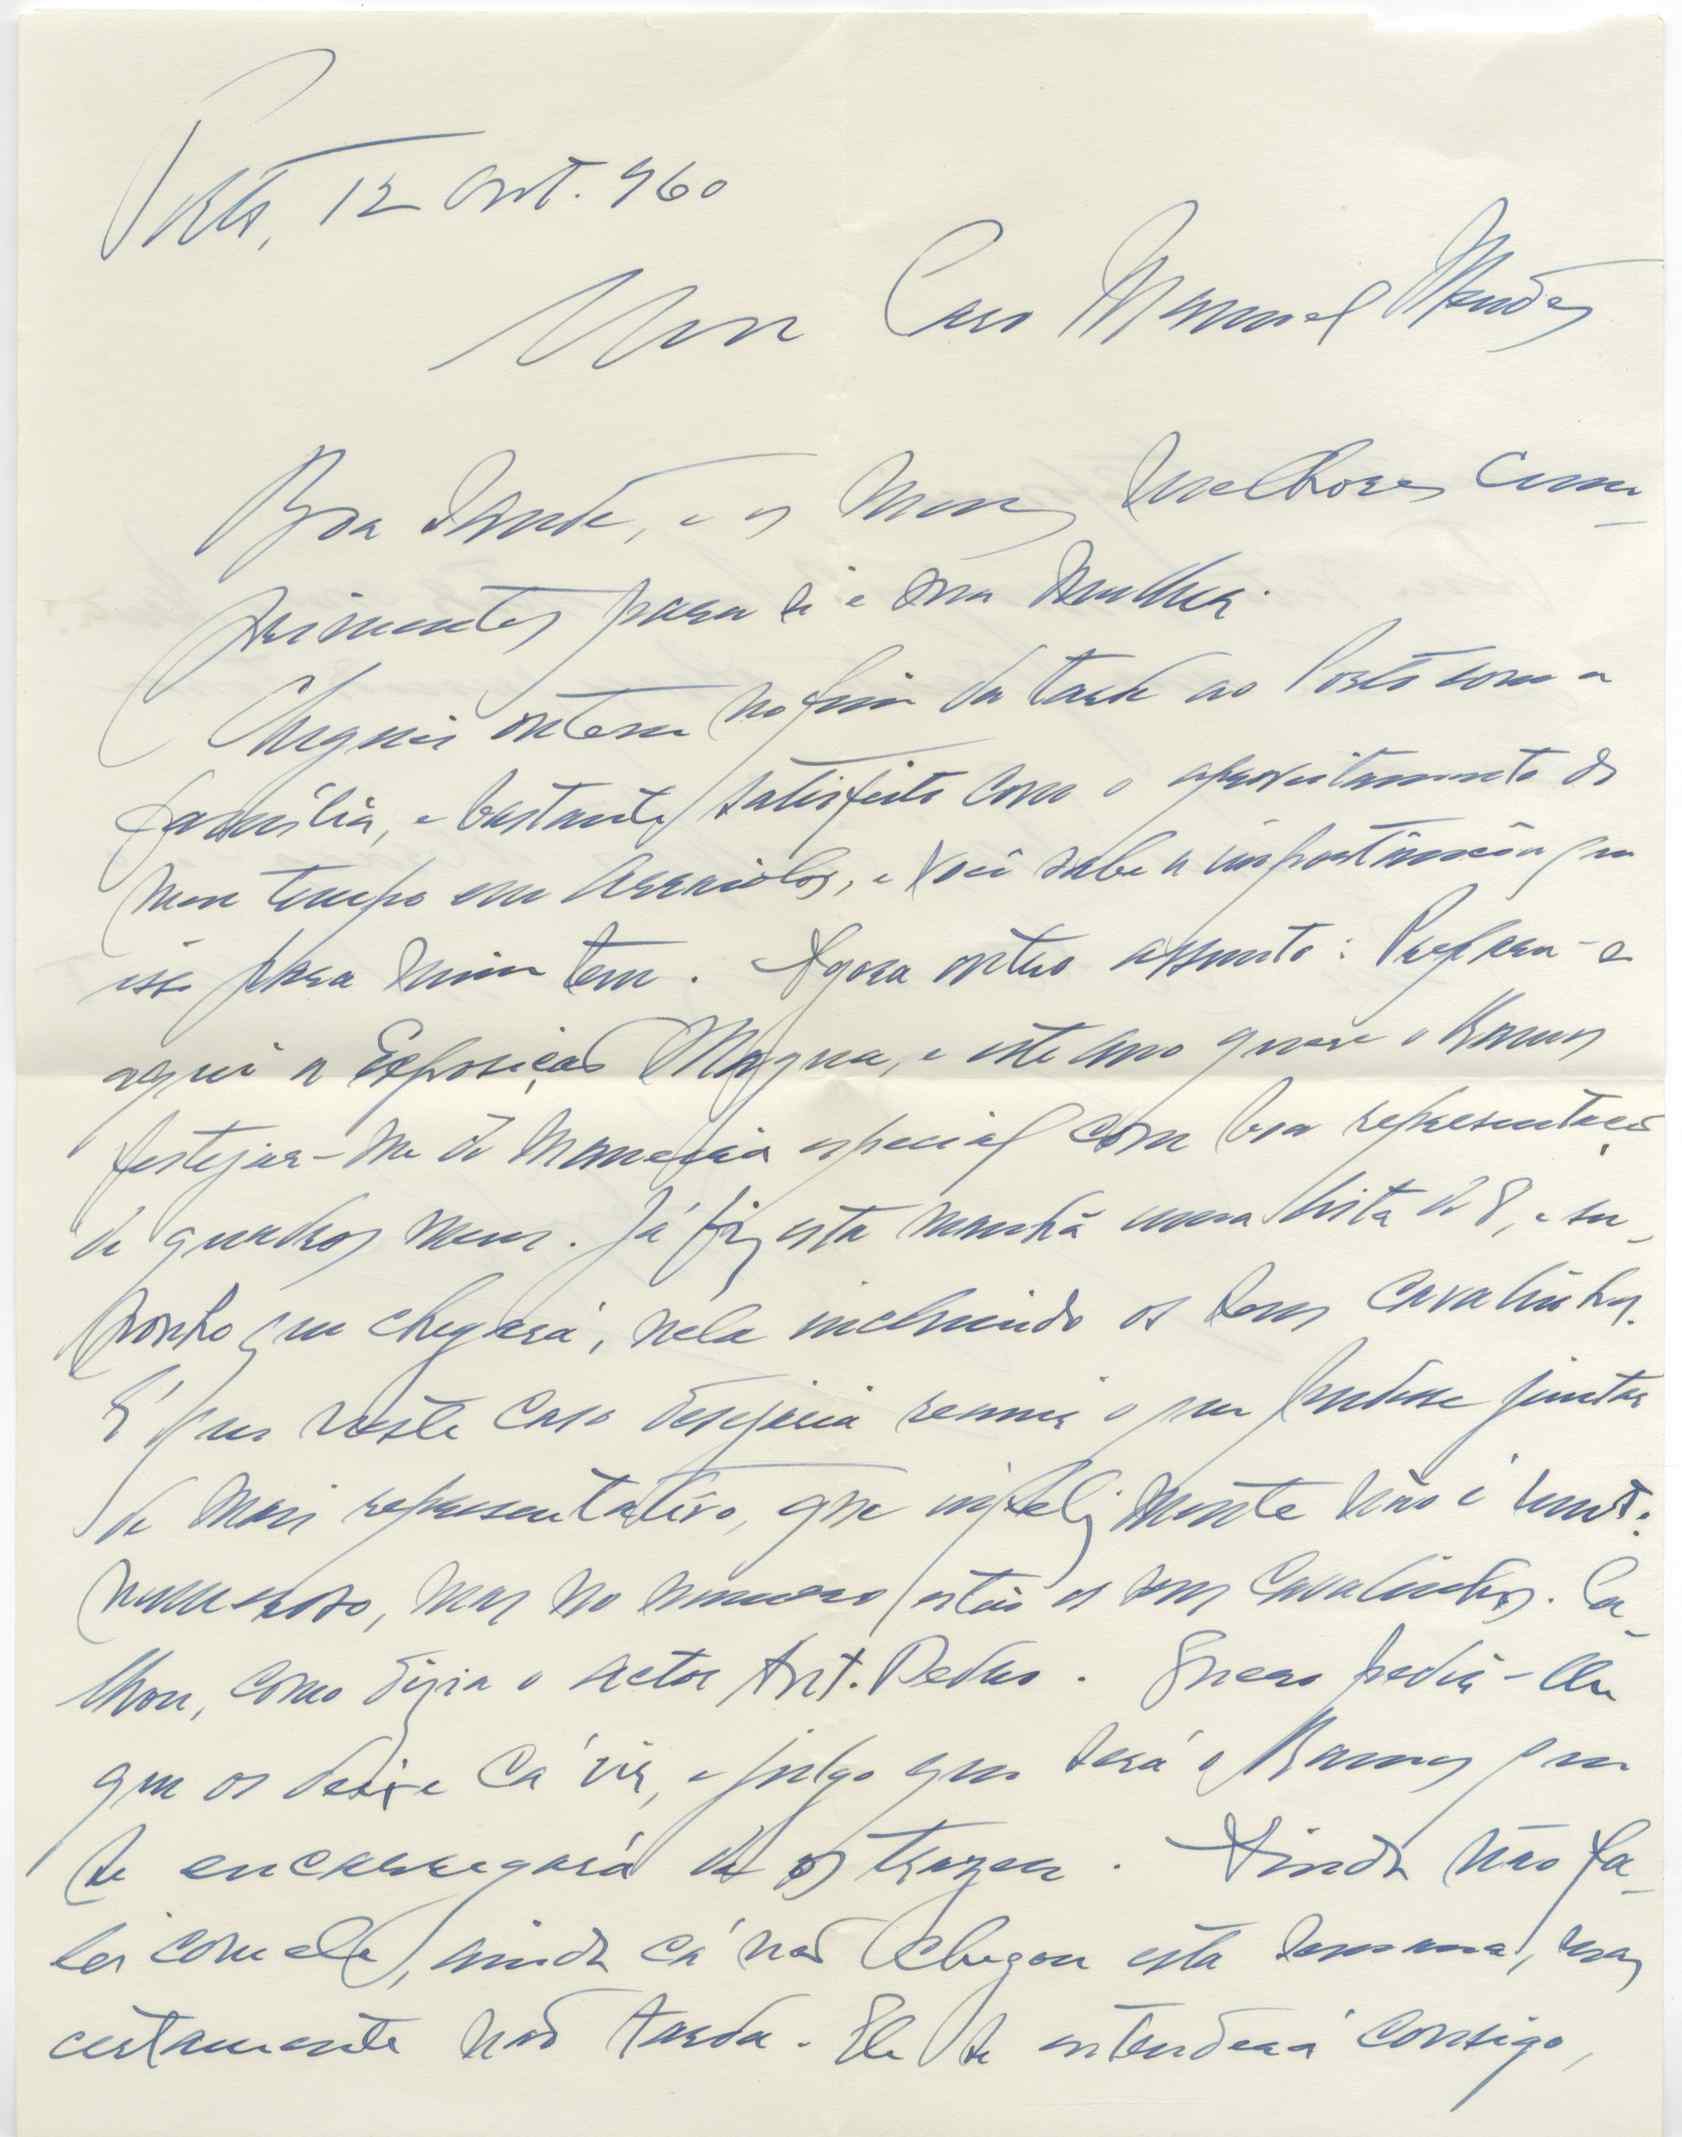 Porto, 12 Out. 960
Meu Caro Manuel Mendes
Boa saude, e os meus melhores cum-
primentos para si e sua mulher.
Cheguei ontem no fim da tarde ao Porto com a
familia, e bastante satisfeito com o aproveitamento do
meu tempo em Arraiolos, e você sabe a importância que
isso para mim tem. Agora outro assunto: Prepara-se
aqui a Exposição Magna, e este ano quere o Ramos
festejar-me de maneira especial com boa representação
de quadros meus. Já fiz esta manhã uma lista de 8, e su-
ponho que chegará, nela incluindo os seus Cavalinhos.
É que neste caso desejaria reunir o que pudesse juntar
de mais representativo, que infelizmente não é muit.
numeroso, mas no numero estão os seus Cavalinhos. Ca-
lhou, como dizia o actor Ant. Pedro. Quero pedir-lhe
que os deixe cá vir, e julgo que será o Ramos que
se encarregará de os trazer. Ainda não fa-
lei com ele, ainda cá não chegou esta semana, mas
certamente não tarda. Ele se entenderá consigo,